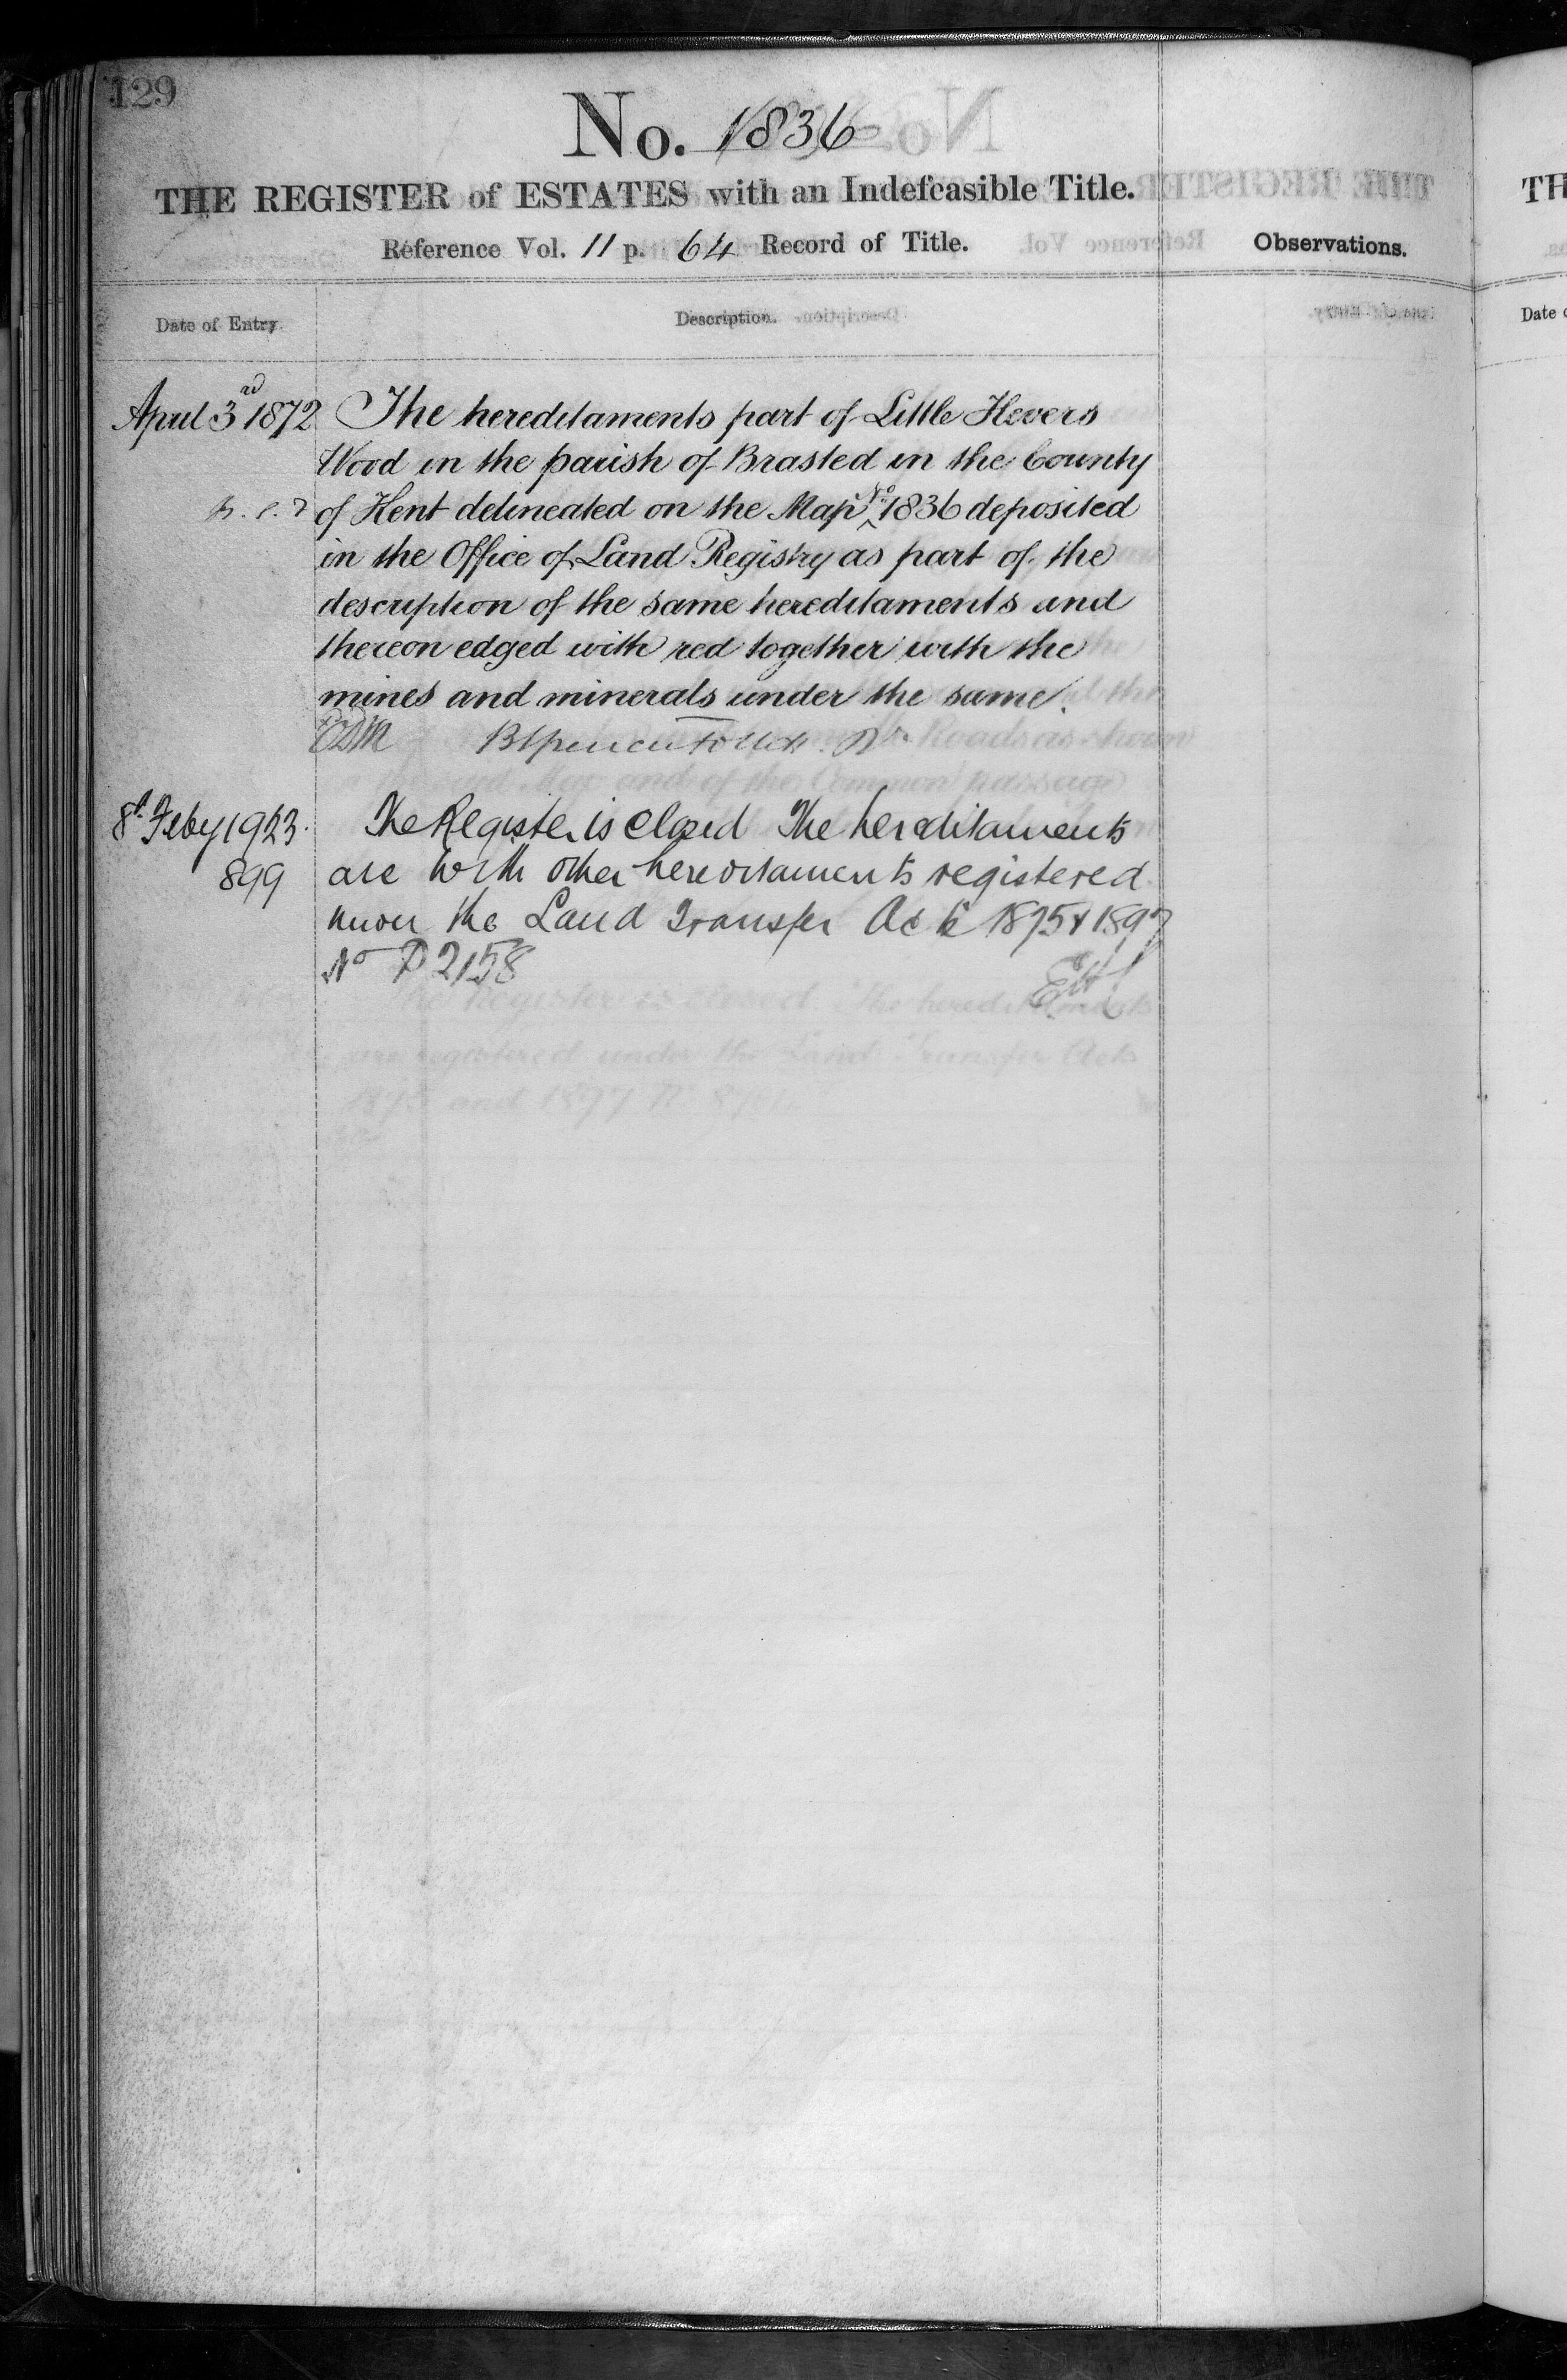 129
No. 1836
THE REGISTER of ESTATES with an Indefeasible Title.
Reference Vol. 11 p. 64 Record of Title.
Observations.
Date of Entry.
Description.
April 3rd 1872
The hereditaments part of Little Hevers
Wood in the parish of Brasted in the County
of Kent delineated on the Map No 1836 deposited
in the Office of Land Registry as part of the
description of the same hereditaments and
thereon edged with red together with the
mines and minerals under the same.
8th Feby 1923.
899
The Register is closed The hereditaments
are with other hereditaments registered
under the Land Transfer Acts 1875 & 1897
No P2158
TH
Date